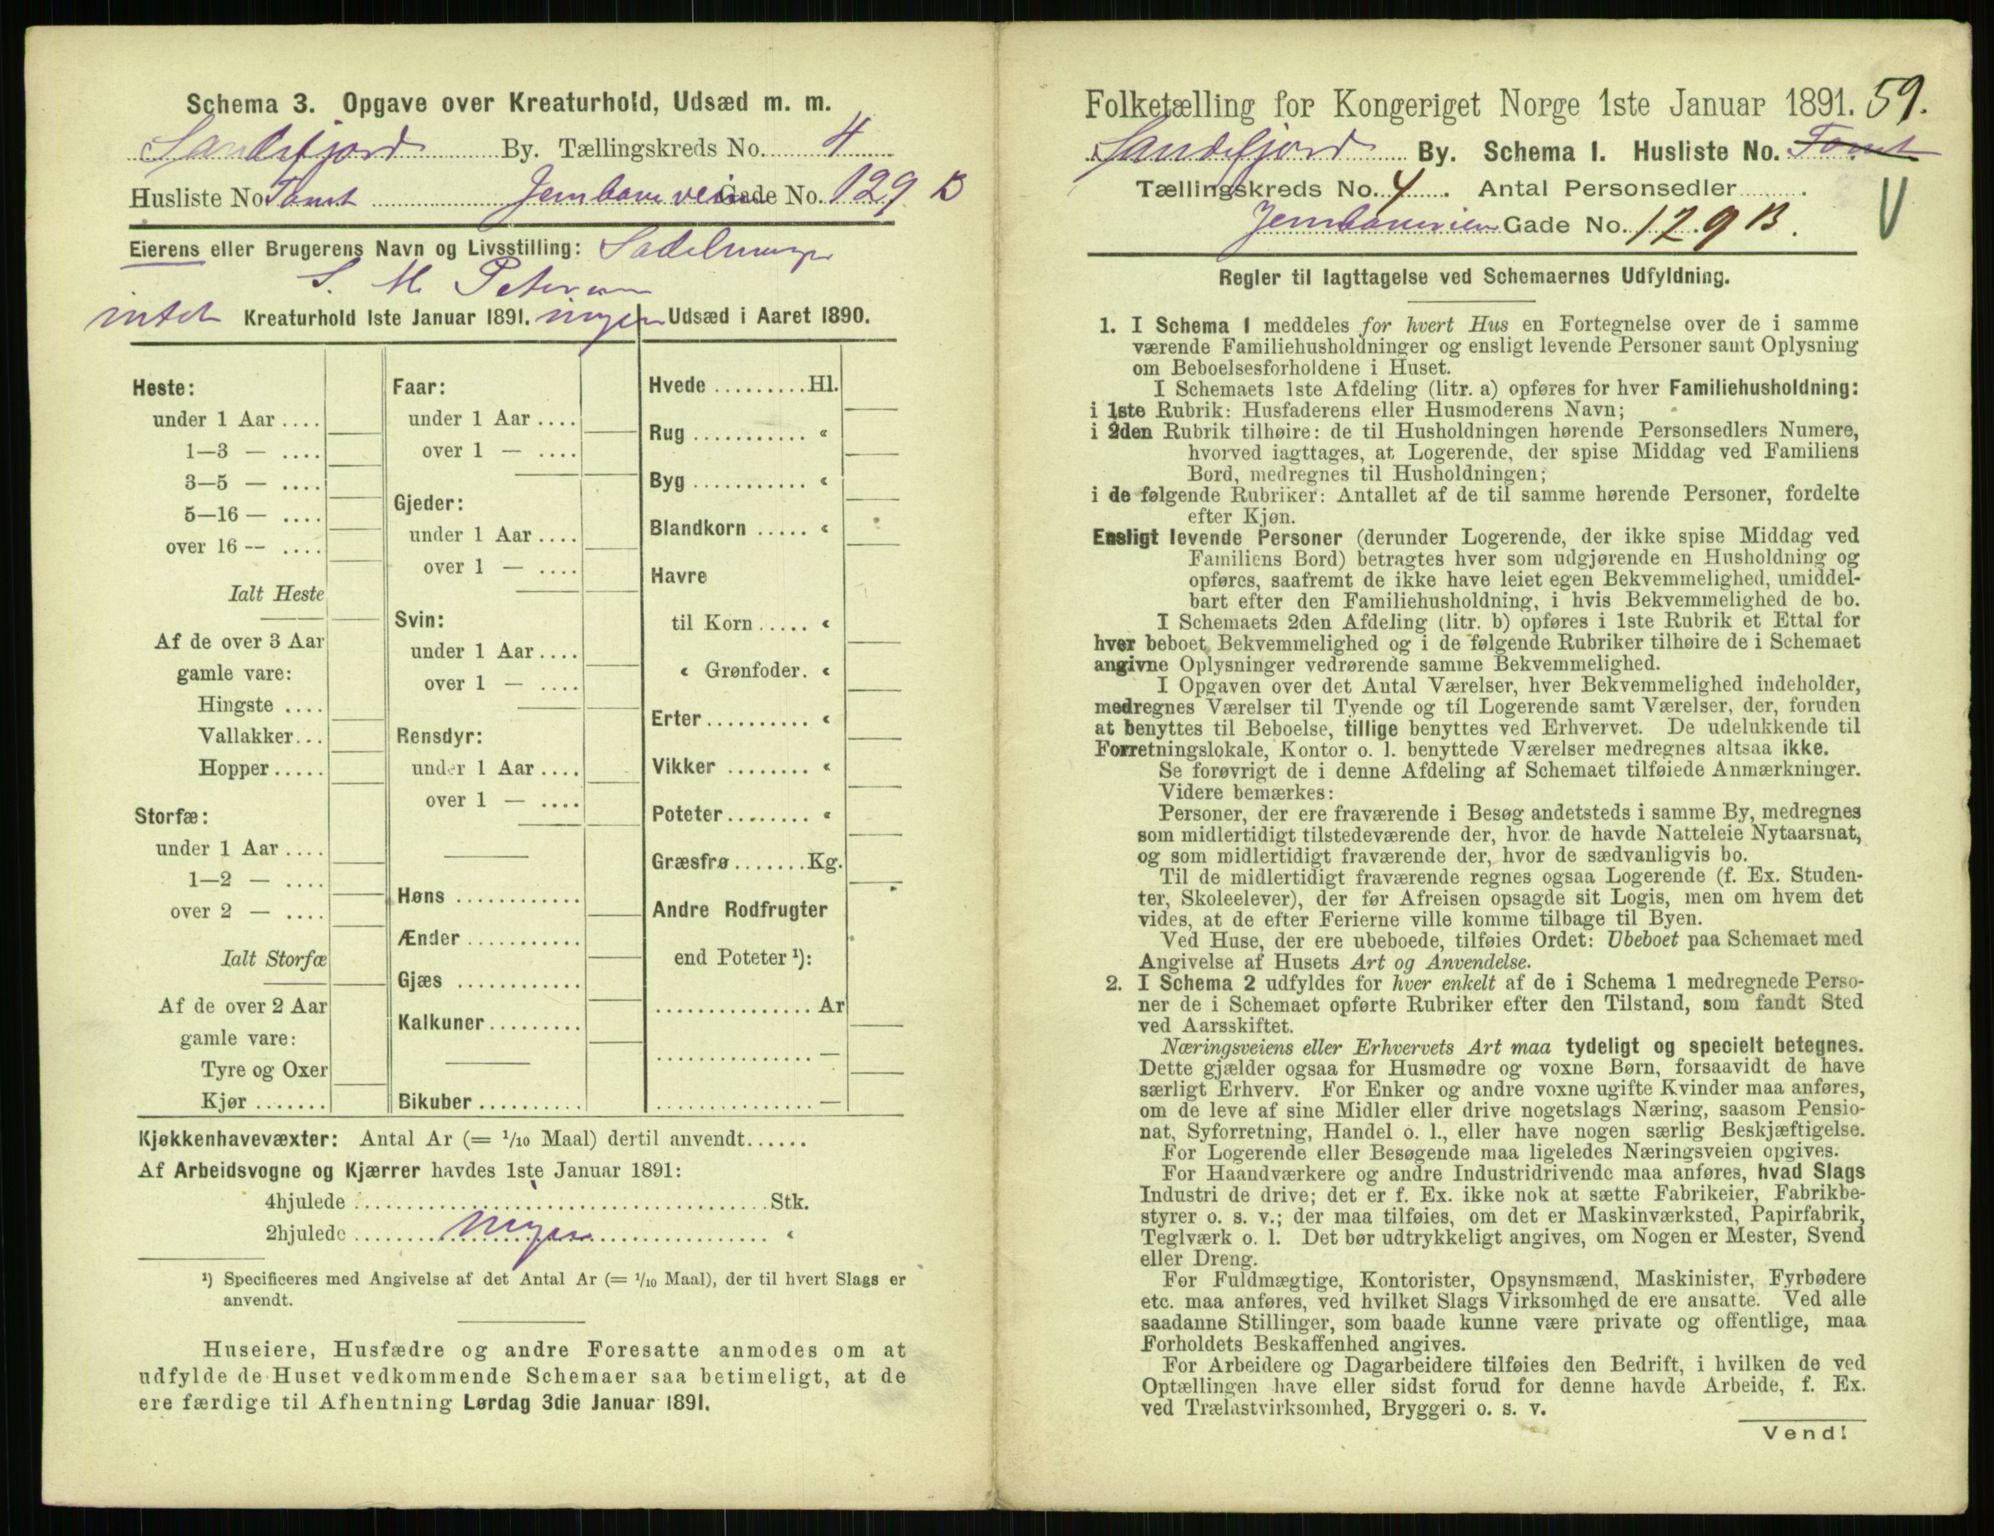 Schema 3. Opgave over Kreaturhold, Udsæd m. m.
Sandefjord By. Tællingskreds No. 4
Husliste No. Tomt Jernbaneveien Gade No. 129 B
Eierens eller Brugerens Navn og Livsstilling: Sadelmager
S. M. Petersen
intet Kreaturhold 1ste Januar 1891. ingen Udsæd i Aaret 1890.
Heste:
under 1 Aar ....
1—3 — ....
3—5 — ....
5—16 — ....
over 16 -- ....
Ialt Heste
Af de over 3 Aar
gamle vare:
Hingste ....
Vallakker...
Hopper.....
Storfæ:
under 1 Aar ....
1—2 — ....
over 2 — ....
Ialt Storfæ
Af de over 2 Aar
gamle vare:
Tyre og Oxer
Kjør .......
Faar:
under 1 Aar ....
over 1 — ....
Gjeder:
under 1 Aar ....
over 1 — ....
Svin:
under 1 Aar ....
over 1 — ....
Rensdyr:
under 1 Aar ....
over 1 — ....
Høns ............
Ænder ...........
Gjæs ............
Kalkuner.........
Bikuber ..........
Hvede .........Hl.
Rug ........... «
Byg ........... «
Blandkorn ..... «
Havre
til Korn ..... «
« Grønfoder. «
Erter.......... «
Vikker ........ «
Poteter........ «
Græsfrø .......Kg.
Andre Rodfrugter
end Poteter ¹):
............... Ar
............... —
............... —
Kjøkkenhavevæxter: Antal Ar (= 1/10 Maal) dertil anvendt......
Af Arbeidsvogne og Kjærrer havdes 1ste Januar 1891:
4hjulede ........................................ Stk.
2hjulede ......... ingen ................ «
¹) Specificeres med Angivelse af det Antal Ar (= 1/10 Maal), der til hvert Slags er
anvendt.
Huseiere, Husfædre og andre Foresatte anmodes om at
udfylde de Huset vedkommende Schemaer saa betimeligt, at de
ere færdige til Afhentning Lørdag 3die Januar 1891.
Folketælling for Kongeriget Norge 1ste Januar 1891. 59.
Sandefjord By. Schema 1. Husliste No. Tomt
Tællingskreds No. 4. Antal Personsedler ........ .
Jernbaneveien Gade No. 129 B.
Regler til Iagttagelse ved Schemaernes Udfyldning.
1. I Schema 1 meddeles for hvert Hus en Fortegnelse over de i samme
værende Familiehusholdninger og ensligt levende Personer samt Oplysning
om Beboelsesforholdene i Huset.
I Schemaets 1ste Afdeling (litr. a) opføres for hver Familiehusholdning:
i 1ste Rubrik: Husfaderens eller Husmoderens Navn;
i 2den Rubrik tilhøire: de til Husholdningen hørende Personsedlers Numere,
hvorved iagttages, at Logerende, der spise Middag ved Familiens
Bord, medregnes til Husholdningen;
i de følgende Rubriker: Antallet af de til samme hørende Personer, fordelte
efter Kjøn.
Ensligt levende Personer (derunder Logerende, der ikke spise Middag ved
Familiens Bord) betragtes hver som udgjørende en Husholdning og
opføres, saafremt de ikke have leiet egen Bekvemmelighed, umiddel-
bart efter den Familiehusholdning, i hvis Bekvemmelighed de bo.
I Schemaets 2den Afdeling (litr. b) opføres i 1ste Rubrik et Ettal for
hver beboet Bekvemmelighed og i de følgende Rubriker tilhøire de i Schemaet
angivne Oplysninger vedrørende samme Bekvemmelighed.
I Opgaven over det Antal Værelser, hver Bekvemmelighed indeholder,
medregnes Værelser til Tyende og til Logerende samt Værelser, der, foruden
at benyttes til Beboelse, tillige benyttes ved Erhvervet. De udelukkende til
Forretningslokale, Kontor o. l. benyttede Værelser medregnes altsaa ikke.
Se forøvrigt de i denne Afdeling af Schemaet tilføiede Anmærkninger.
Videre bemærkes:
Personer, der ere fraværende i Besøg andetsteds i samme By, medregnes
som midlertidigt tilstedeværende der, hvor de havde Natteleie Nytaarsnat,
og som midlertidigt fraværende der, hvor de sædvanligvis bo.
Til de midlertidigt fraværende regnes ogsaa Logerende (f. Ex. Studen-
ter, Skoleelever), der før Afreisen opsagde sit Logis, men om hvem det
vides, at de efter Ferierne ville komme tilbage til Byen.
Ved Huse, der ere ubeboede, tilføies Ordet: Ubeboet paa Schemaet med
Angivelse af Husets Art og Anvendelse.
2. I Schema 2 udfyldes for hver enkelt af de i Schema 1 medregnede Perso-
ner de i Schemaet opførte Rubriker efter den Tilstand, som fandt Sted
ved Aarsskiftet.
Næringsveiens eller Erhvervets Art maa tydeligt og specielt betegnes.
Dette gjælder ogsaa for Husmødre og voxne Børn, forsaavidt de have
særligt Erhverv. For Enker og andre voxne ugifte Kvinder maa anføres,
om de leve af sine Midler eller drive nogetslags Næring, saasom Pensio-
nat, Syforretning, Handel o. l., eller have nogen særlig Beskjæftigelse.
For Logerende eller Besøgende maa ligeledes Næringsveien opgives.
For Haandværkere og andre Industridrivende maa anføres, hvad Slags
Industri de drive; det er f. Ex. ikke nok at sætte Fabrikeier, Fabrikbe-
styrer o. s. v.; der maa tilføies, om det er Maskinværksted, Papirfabrik,
Teglværk o. l. Det bør udtrykkeligt angives, om Nogen er Mester, Svend
eller Dreng.
For Fuldmægtige, Kontorister, Opsynsmænd, Maskinister, Fyrbødere
etc. maa anføres, ved hvilket Slags Virksomhed de ere ansatte. Ved alle
saadanne Stillinger, som baade kunne være private og offentlige, maa
Forholdets Beskaffenhed angives.
For Arbeidere og Dagarbeidere tilføies den Bedrift, i hvilken de ved
Optællingen have eller sidst forud for denne havde Arbeide, f. Ex.
ved Trælastvirksomhed, Bryggeri o. s. v.
Vend!